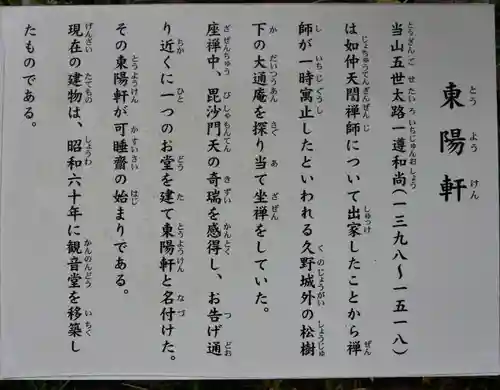 東陽軒
当山五世太路一遵和尚(一三九八〜一五一八)
は如仲天誾禅師について出家したことから禅
師が一時寓止したといわれる久野城外の松樹
下の大通庵を探り当て坐禅をしていた。
座禅中、毘沙門天の奇瑞を感得し、お告げ通
り近くに一つのお堂を建て東陽軒と名付けた。
その東陽軒が可睡齋の始まりである。
現在の建物は、昭和六十年に観音堂を移築し
たものである。